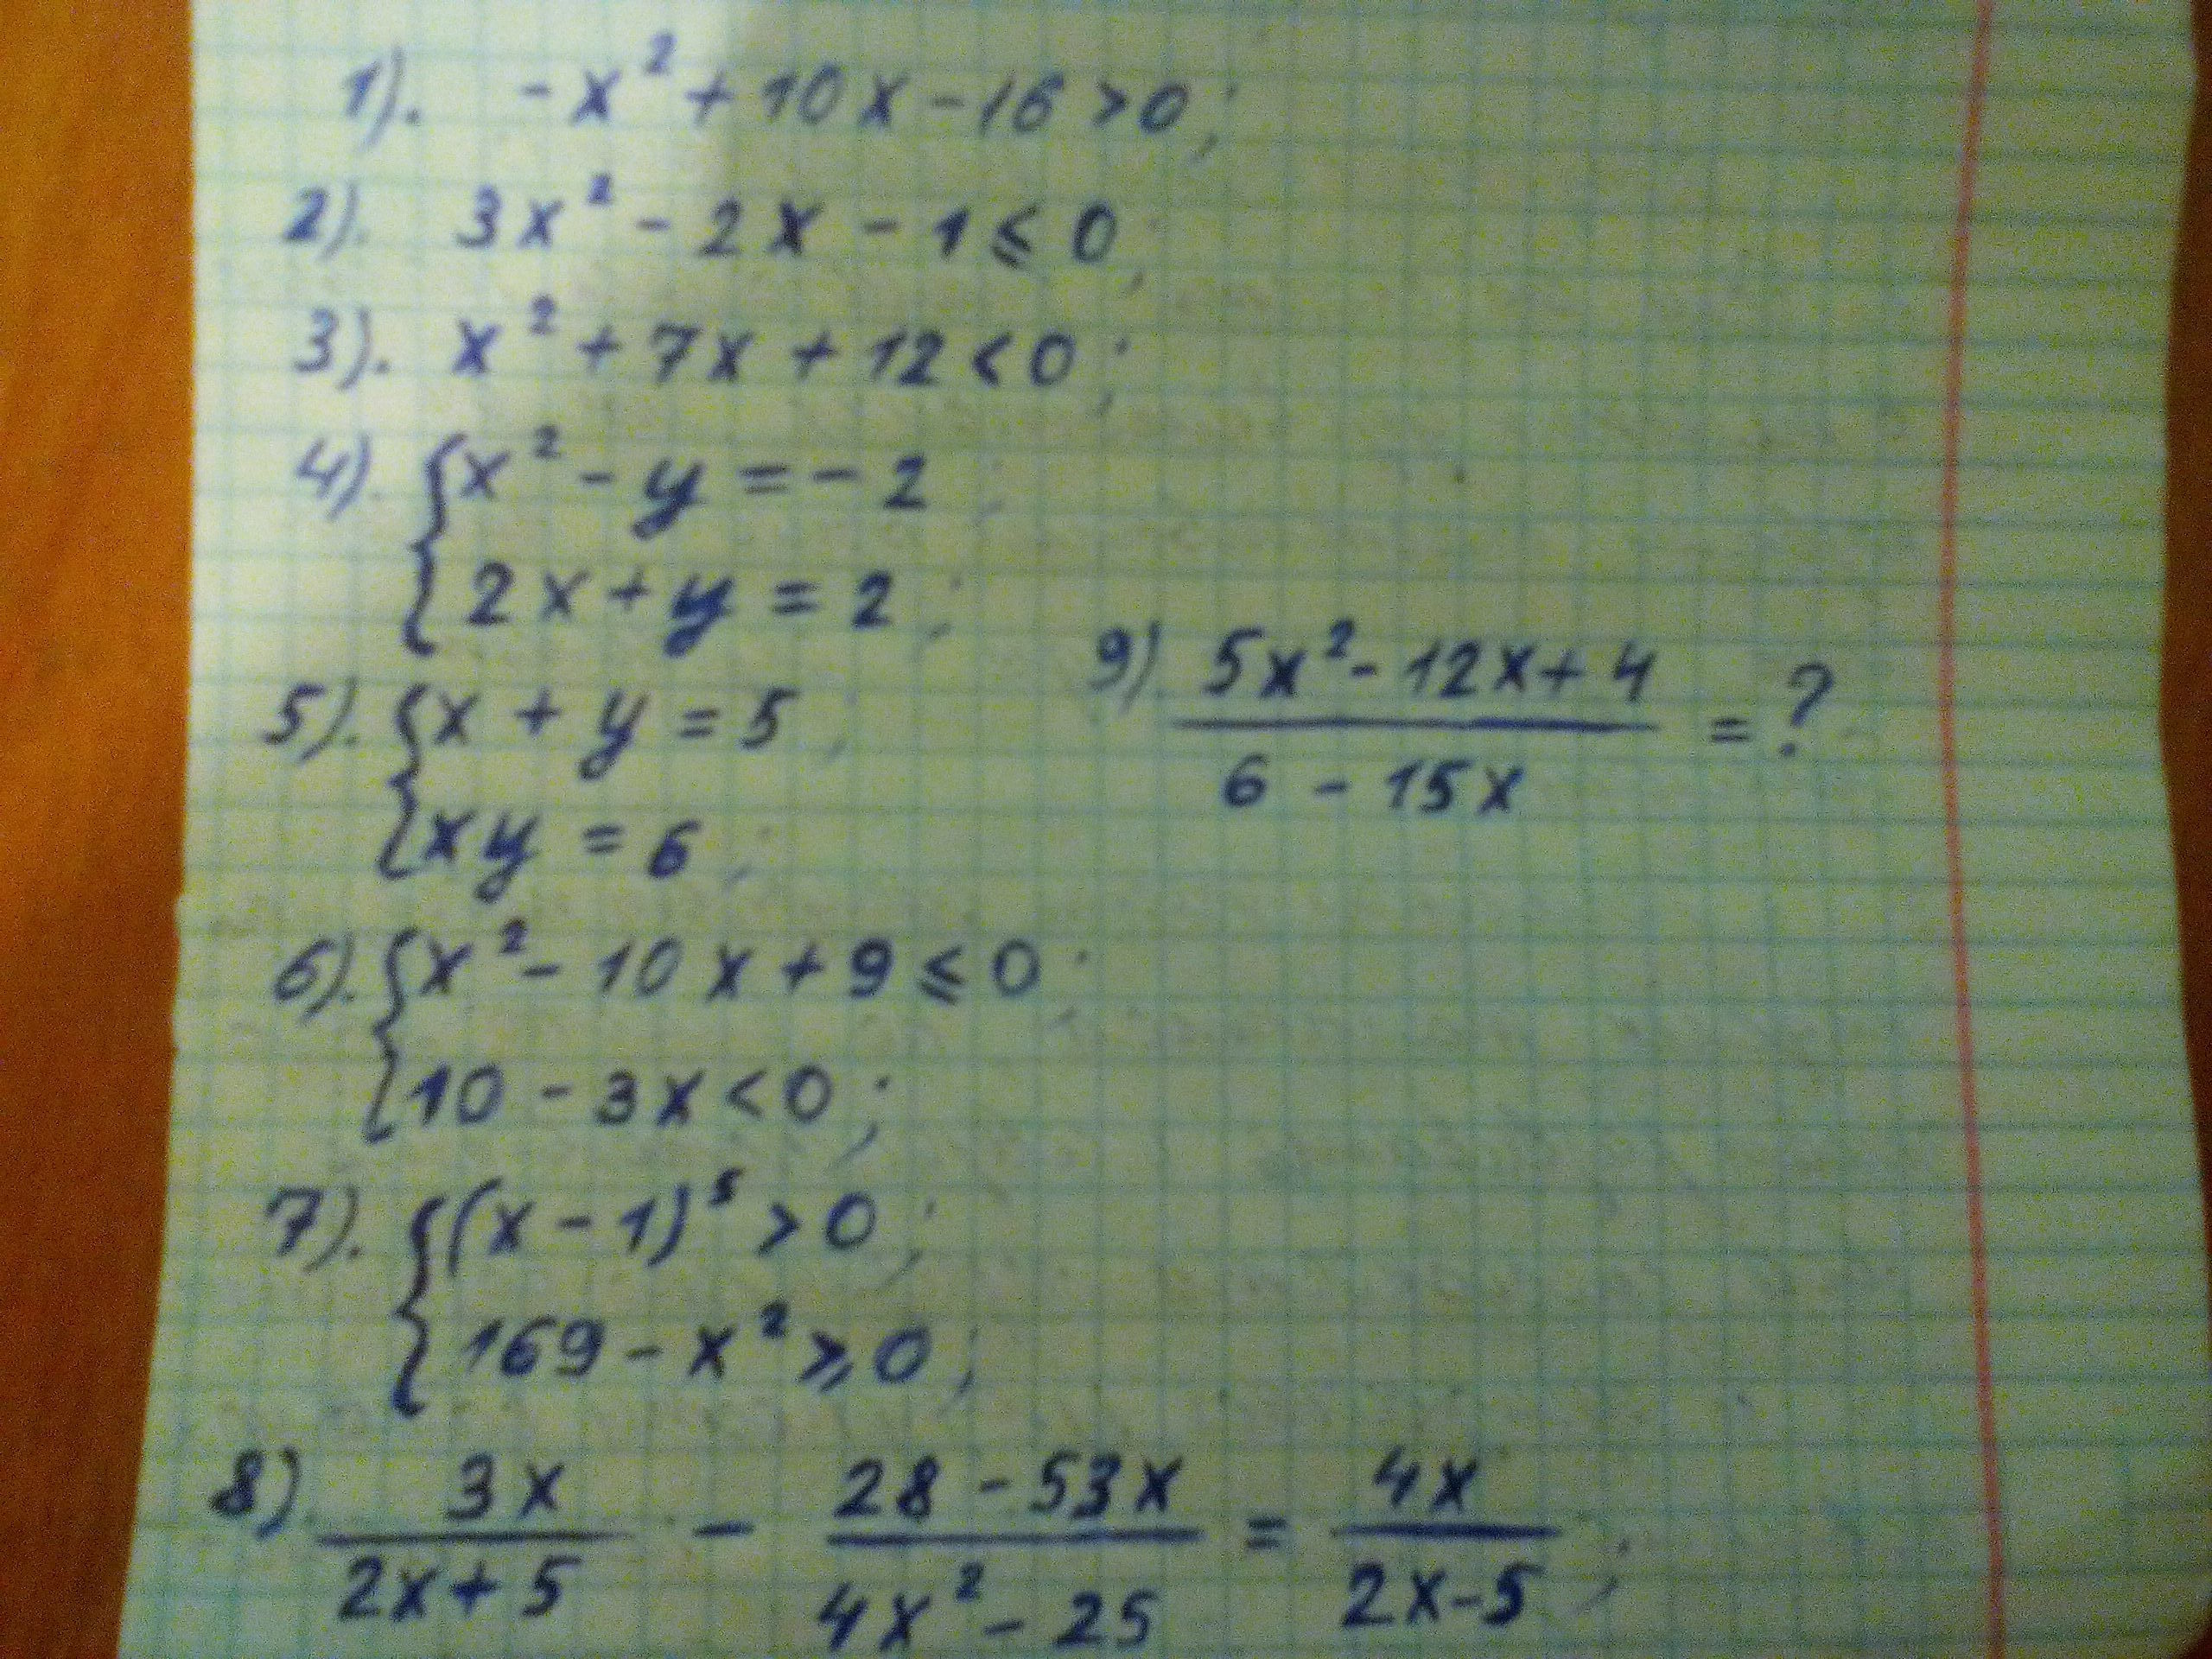 1). -x² + 10x - 16 > 0;
2). 3x² - 2x - 1 ⩽ 0;
3). x² + 7x + 12 < 0;
4). { x² - y = -2;
2x + y = 2;
5). { x + y = 5;
xy = 6;
6). { x² - 10x + 9 ⩽ 0;
10 - 3x < 0;
7). { (x - 1)⁵ > 0;
169 - x² ⩾ 0;
8) 3x/(2x + 5) - (28 - 53x)/(4x² - 25) = 4x/(2x - 5);
9) (5x² - 12x + 4)/(6 - 15x) = ?